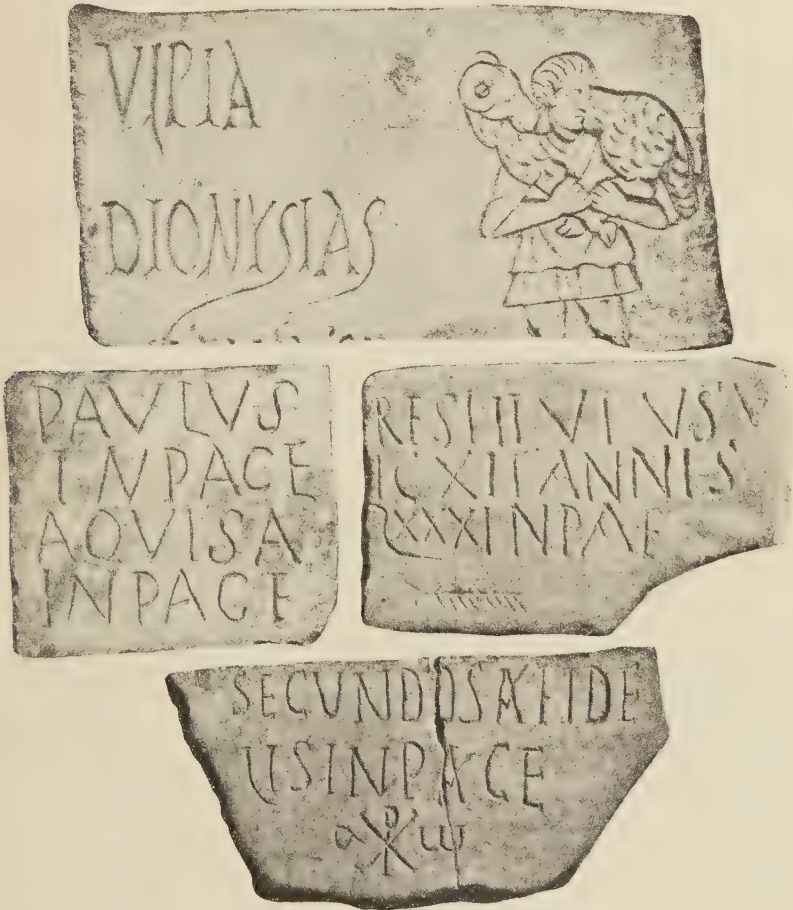 VIPIA
DIONYSIAS
PAVLVS
INPACE
AQVISA
INPACE
VS V
IC XII ANNIS
XXXXINPAE
SECUNDOSAFIDE
USINPACE
α ☧ ω